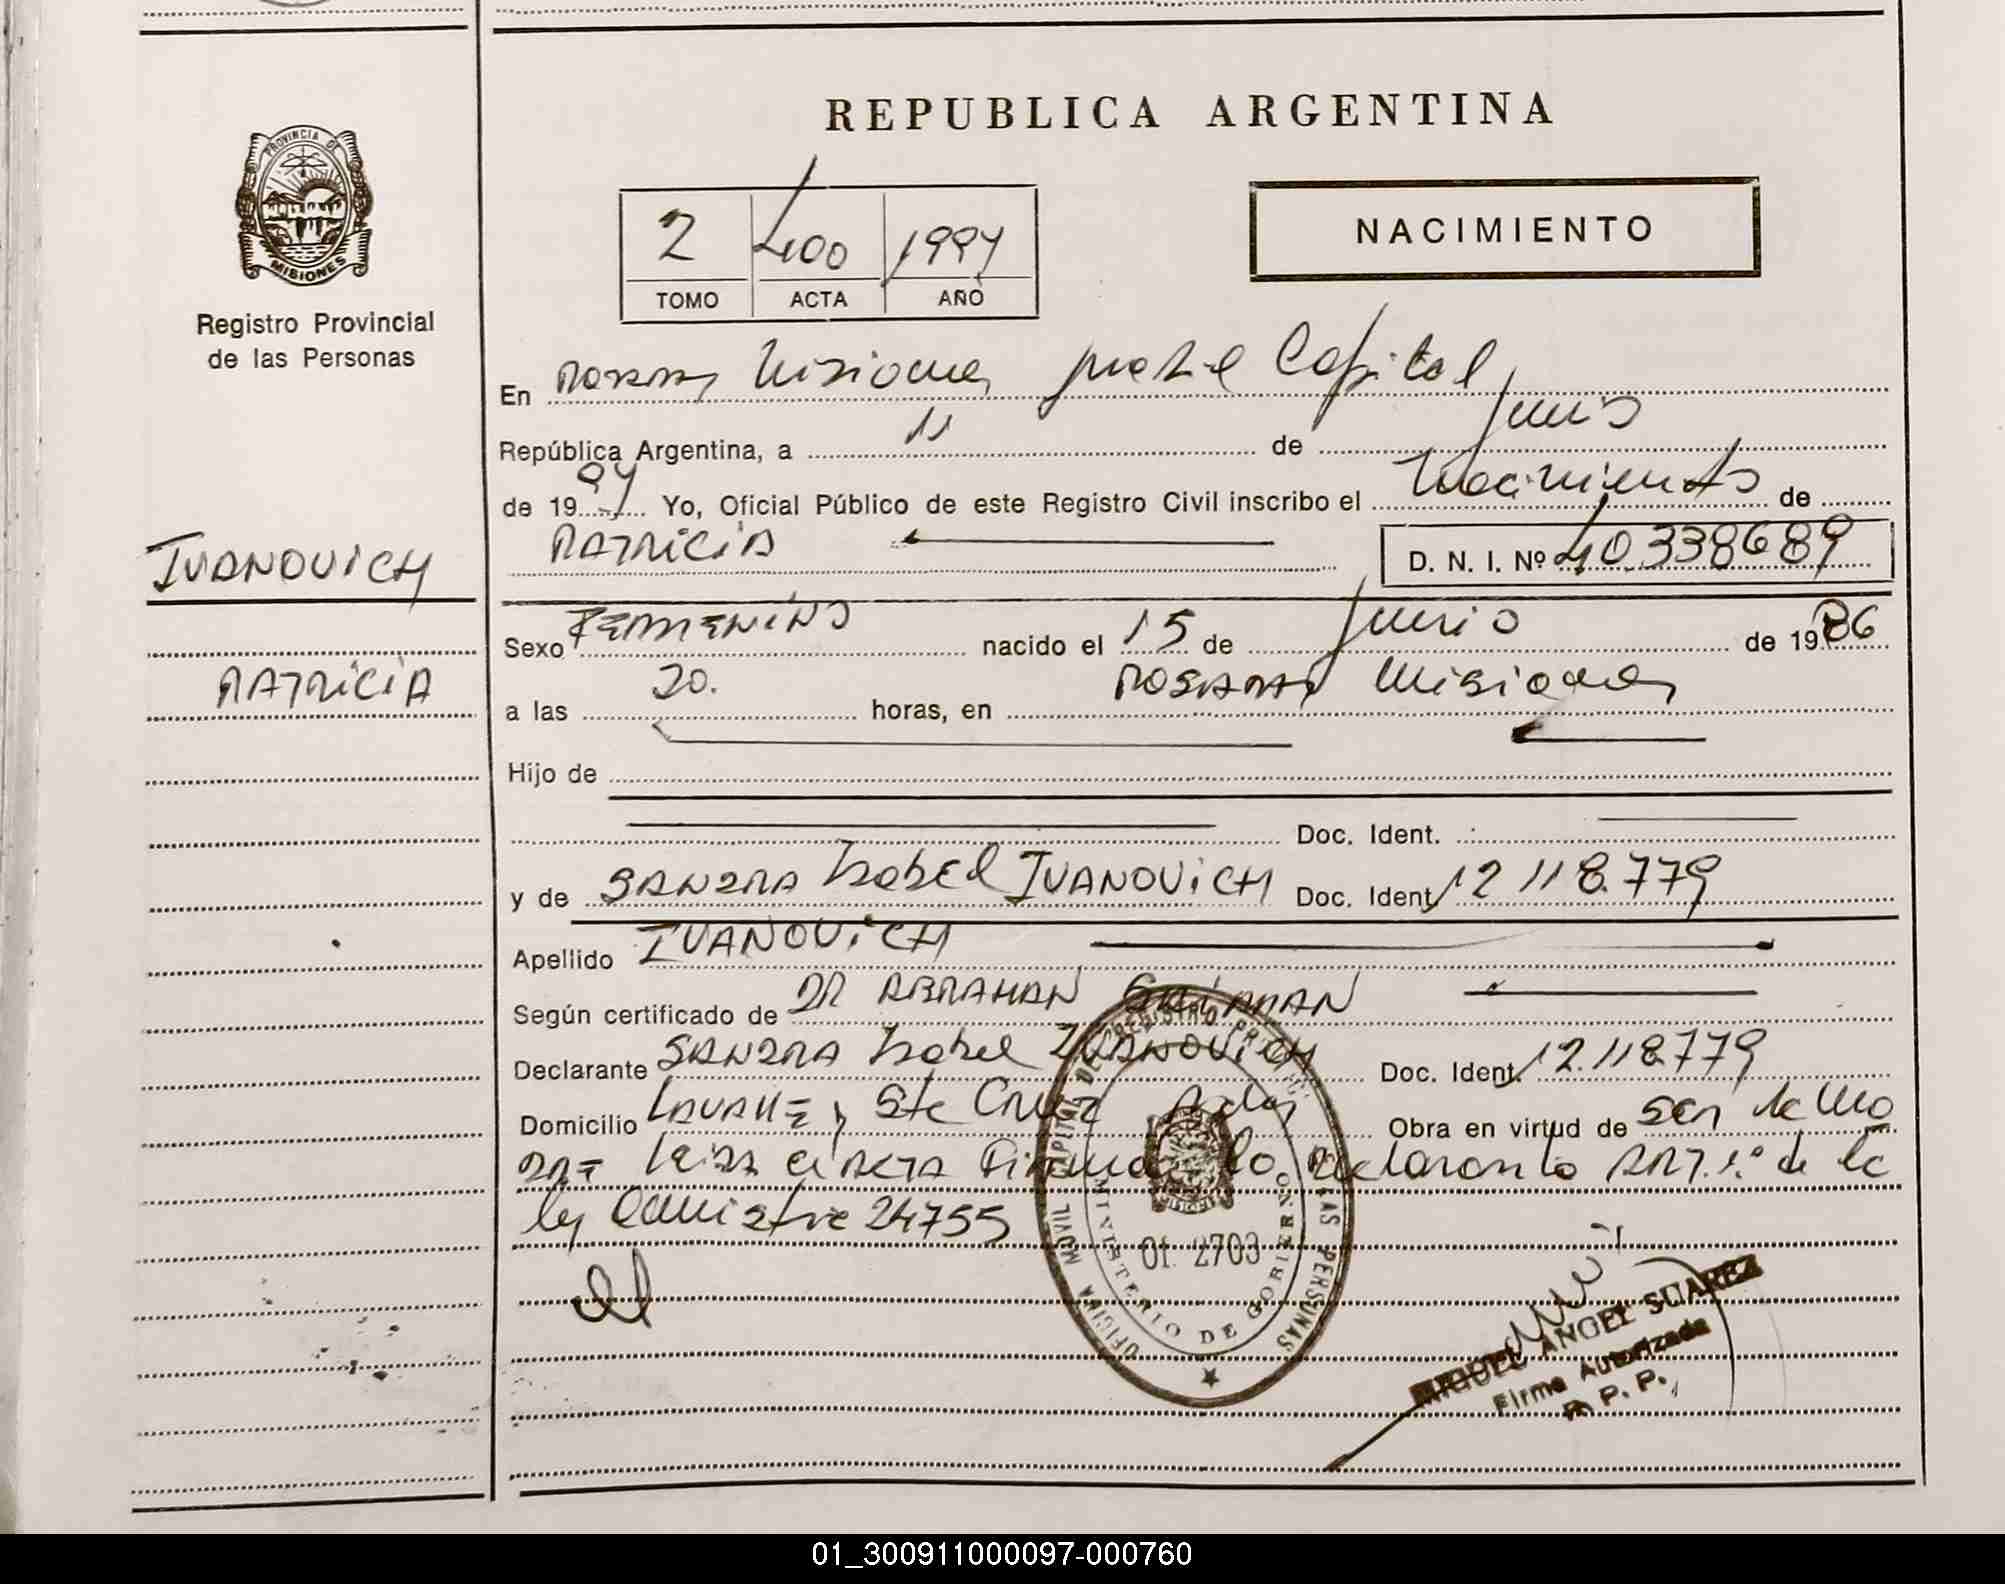 REPUBLICA ARGENTINA
PROVINCIA DE
MISIONES
Registro Provincial
de las Personas
2 400 1997
TOMO ACTA AÑO
NACIMIENTO
En Posadas Misiones Capital
República Argentina, a 11 de Junio
de 1997 Yo, Oficial Público de este Registro Civil inscribo el Nacimiento de
PATRICIA D. N. I. Nº 40.338689
IVANOVICH
PATRICIA
Sexo FEMENINO nacido el 15 de Junio de 1986
a las 20. horas, en POSADAS Misiones
Hijo de
Doc. Ident.
y de SANDRA Isabel IVANOVICH Doc. Ident. 12 118.779
Apellido IVANOVICH
Según certificado de DR ABRAHAN
Declarante SANDRA Isabel IVANOVICH Doc. Ident. 12.118.779
Domicilio LAVALLE y Sta Cruz Pdas Obra en virtud de ser la Ma
DRE Leida el ACTA la declarante ART. 1º de la
ley 24755
OFICINA MOVIL CAPITAL DEL REGISTRO PROVINCIAL DE LAS PERSONAS
MINISTERIO DE GOBIERNO
01 2703
MIGUEL ANGEL SUAREZ
Firma Autorizada
R. P. P.
01_300911000097-000760